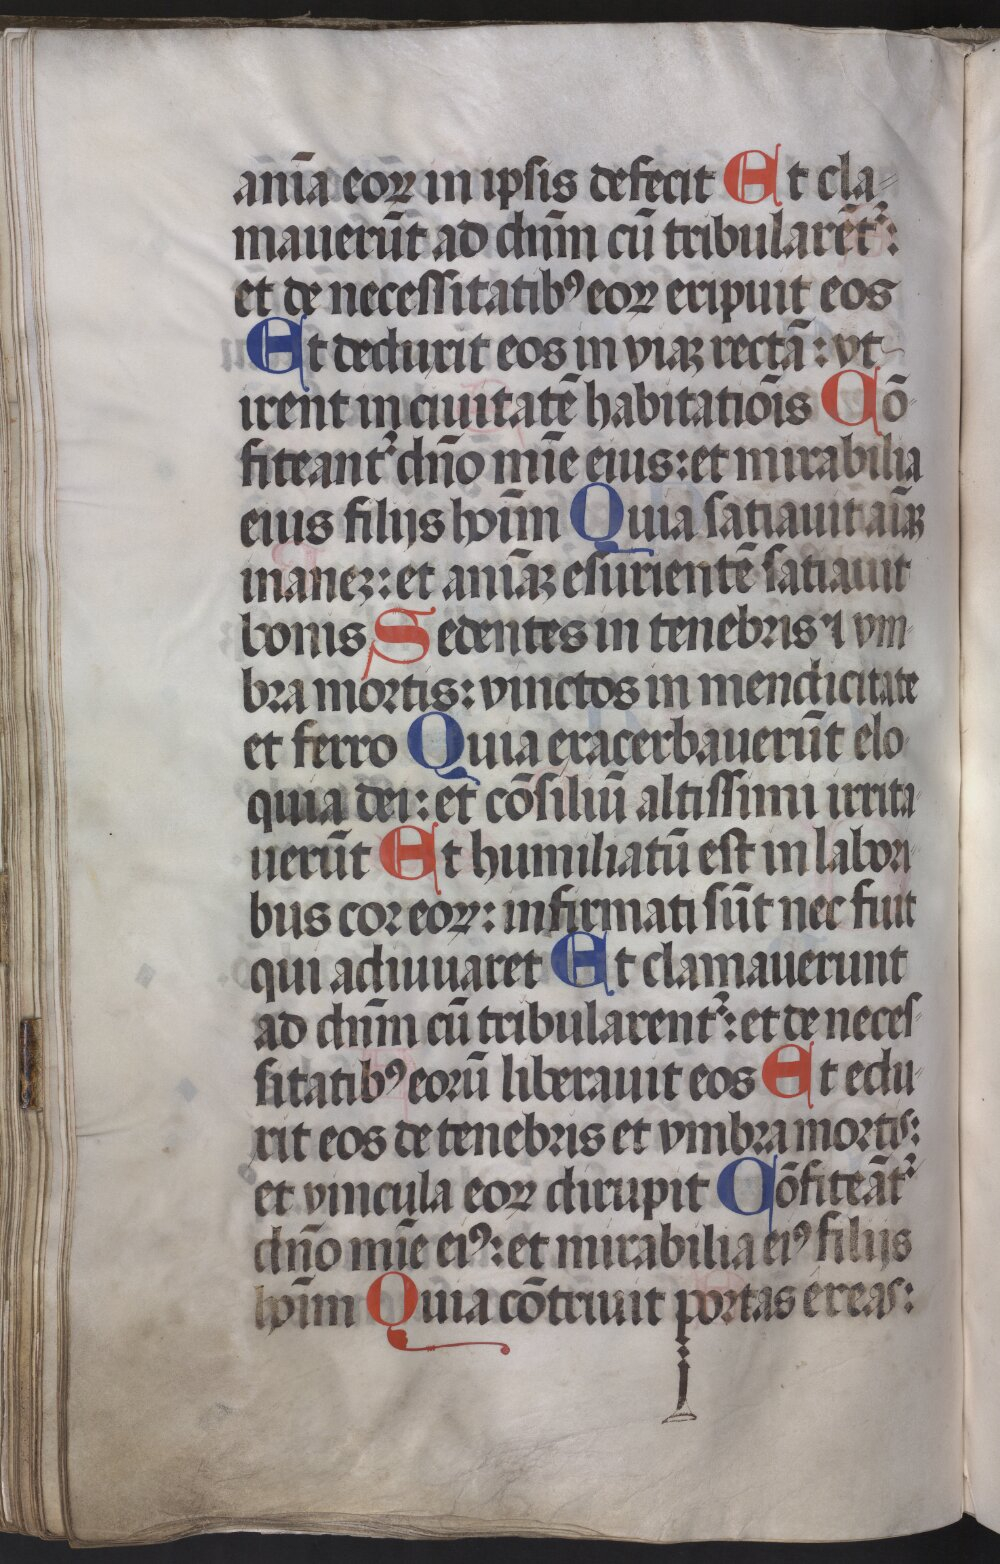 anīa eoꝝ in ipsis defecit Et cla⸗
mauerūt ad dnm̄ cū tribularēt᷑:
et de necessitatibꝰ eoꝝ eripuit eos
Et deduxit eos in viaꝫ rectā: vt
irent in ciuitatē habitatiōis Cō⸗
fiteant᷑ dn̄o mīe eius: et mirabilia
eius filijs hoīm Quia satiauit aīaꝫ
inaneꝫ: et anīaꝫ esurientē satiauit
bonis Sedentes in tenebris ⁊ vm⸗
bra mortis: vinctos in mendicitate
et ferro Quia exacerbauerūt elo⸗
quia dei: et cōsiliū altissimi irrita⸗
uerūt Et humiliatū est in labori⸗
bus cor eoꝝ: infirmati sūt nec fuit
qui adiuuaret Et clamauerunt
ad dnm̄ cū tribularent᷑: et de neces⸗
sitatibꝰ eorū liberauit eos Et edu⸗
xit eos de tenebris et vmbra mortis:
et vincula eoꝝ dirupit Cōfiteāt᷑
dn̄o mīe eiꝰ: et mirabilia eiꝰ filijs
hoīm Quia cōtriuit portas ereas: